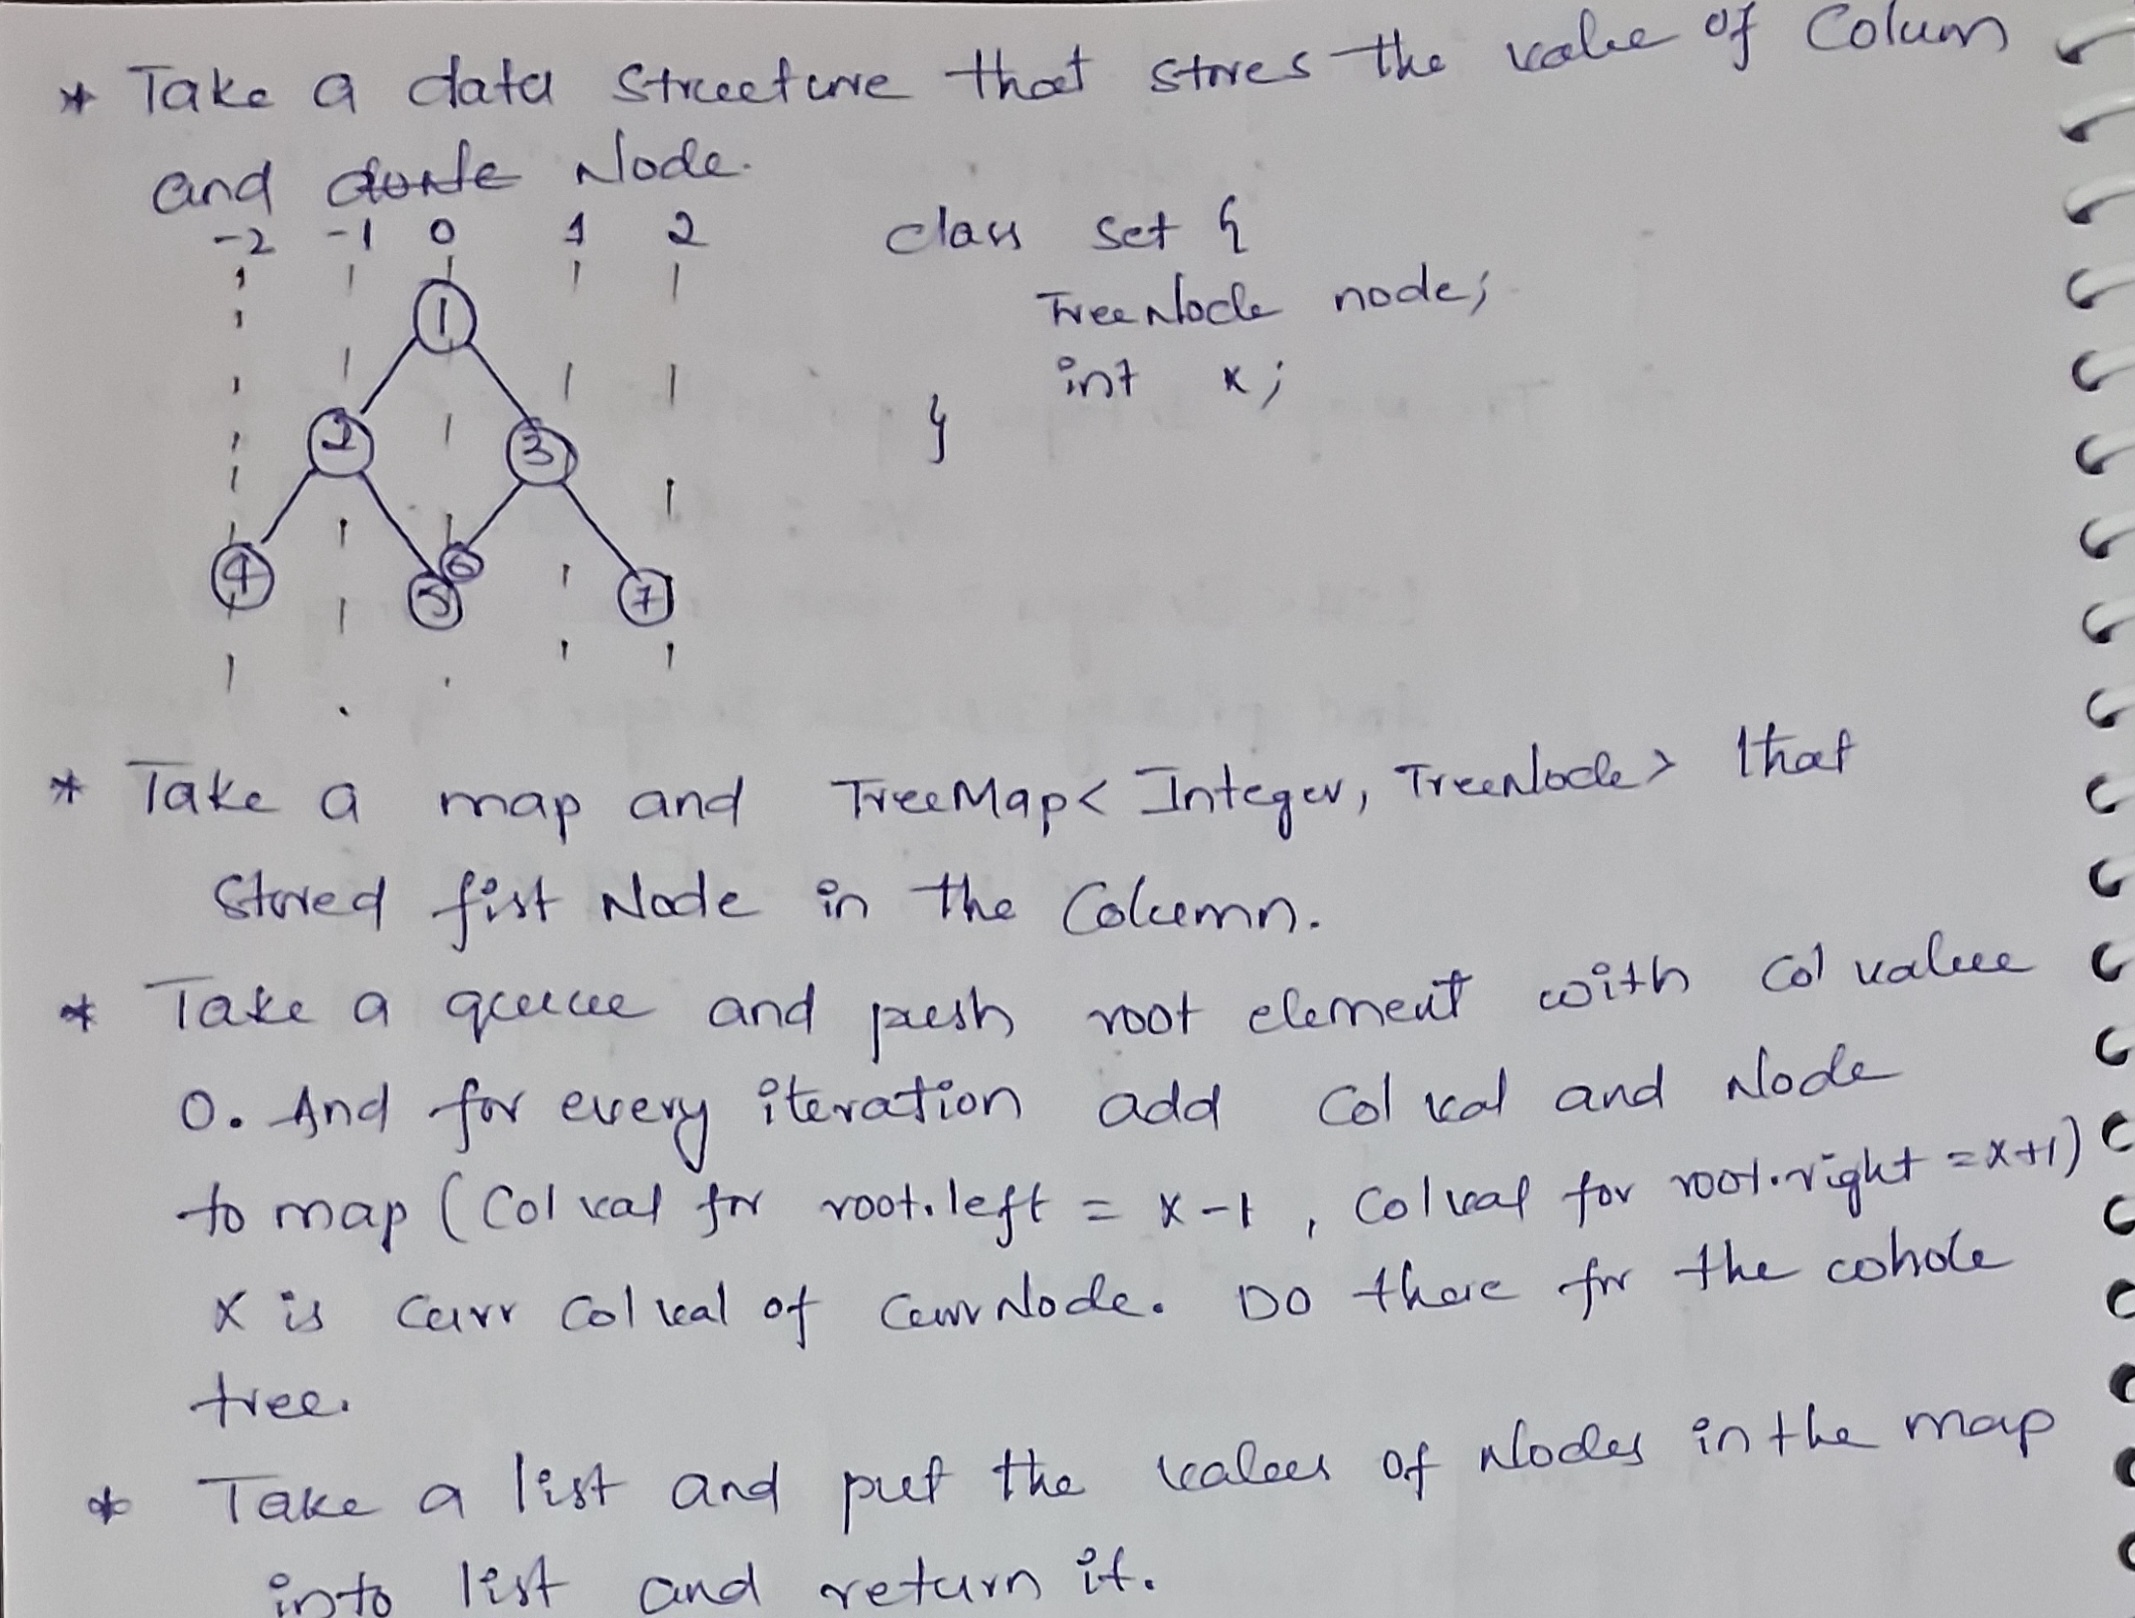 * Take a data structure that stores the value of Colum
and Node.
-2 -1 0 1 2
class set {
TreeNode node;
int x;
}
1
2 3
4 5 6 7
* Take a map and TreeMap< Integer, TreeNode> that
Stored fist Node in the Column.
* Take a queue and push root element with col value
0. And for every iteration add col val and Node
to map (Col val for root.left = x-1, Col val for root.right = x+1)
x is curr col val of curr Node. Do there for the whole
tree.
* Take a list and put the values of Nodes in the map
into list and return it.